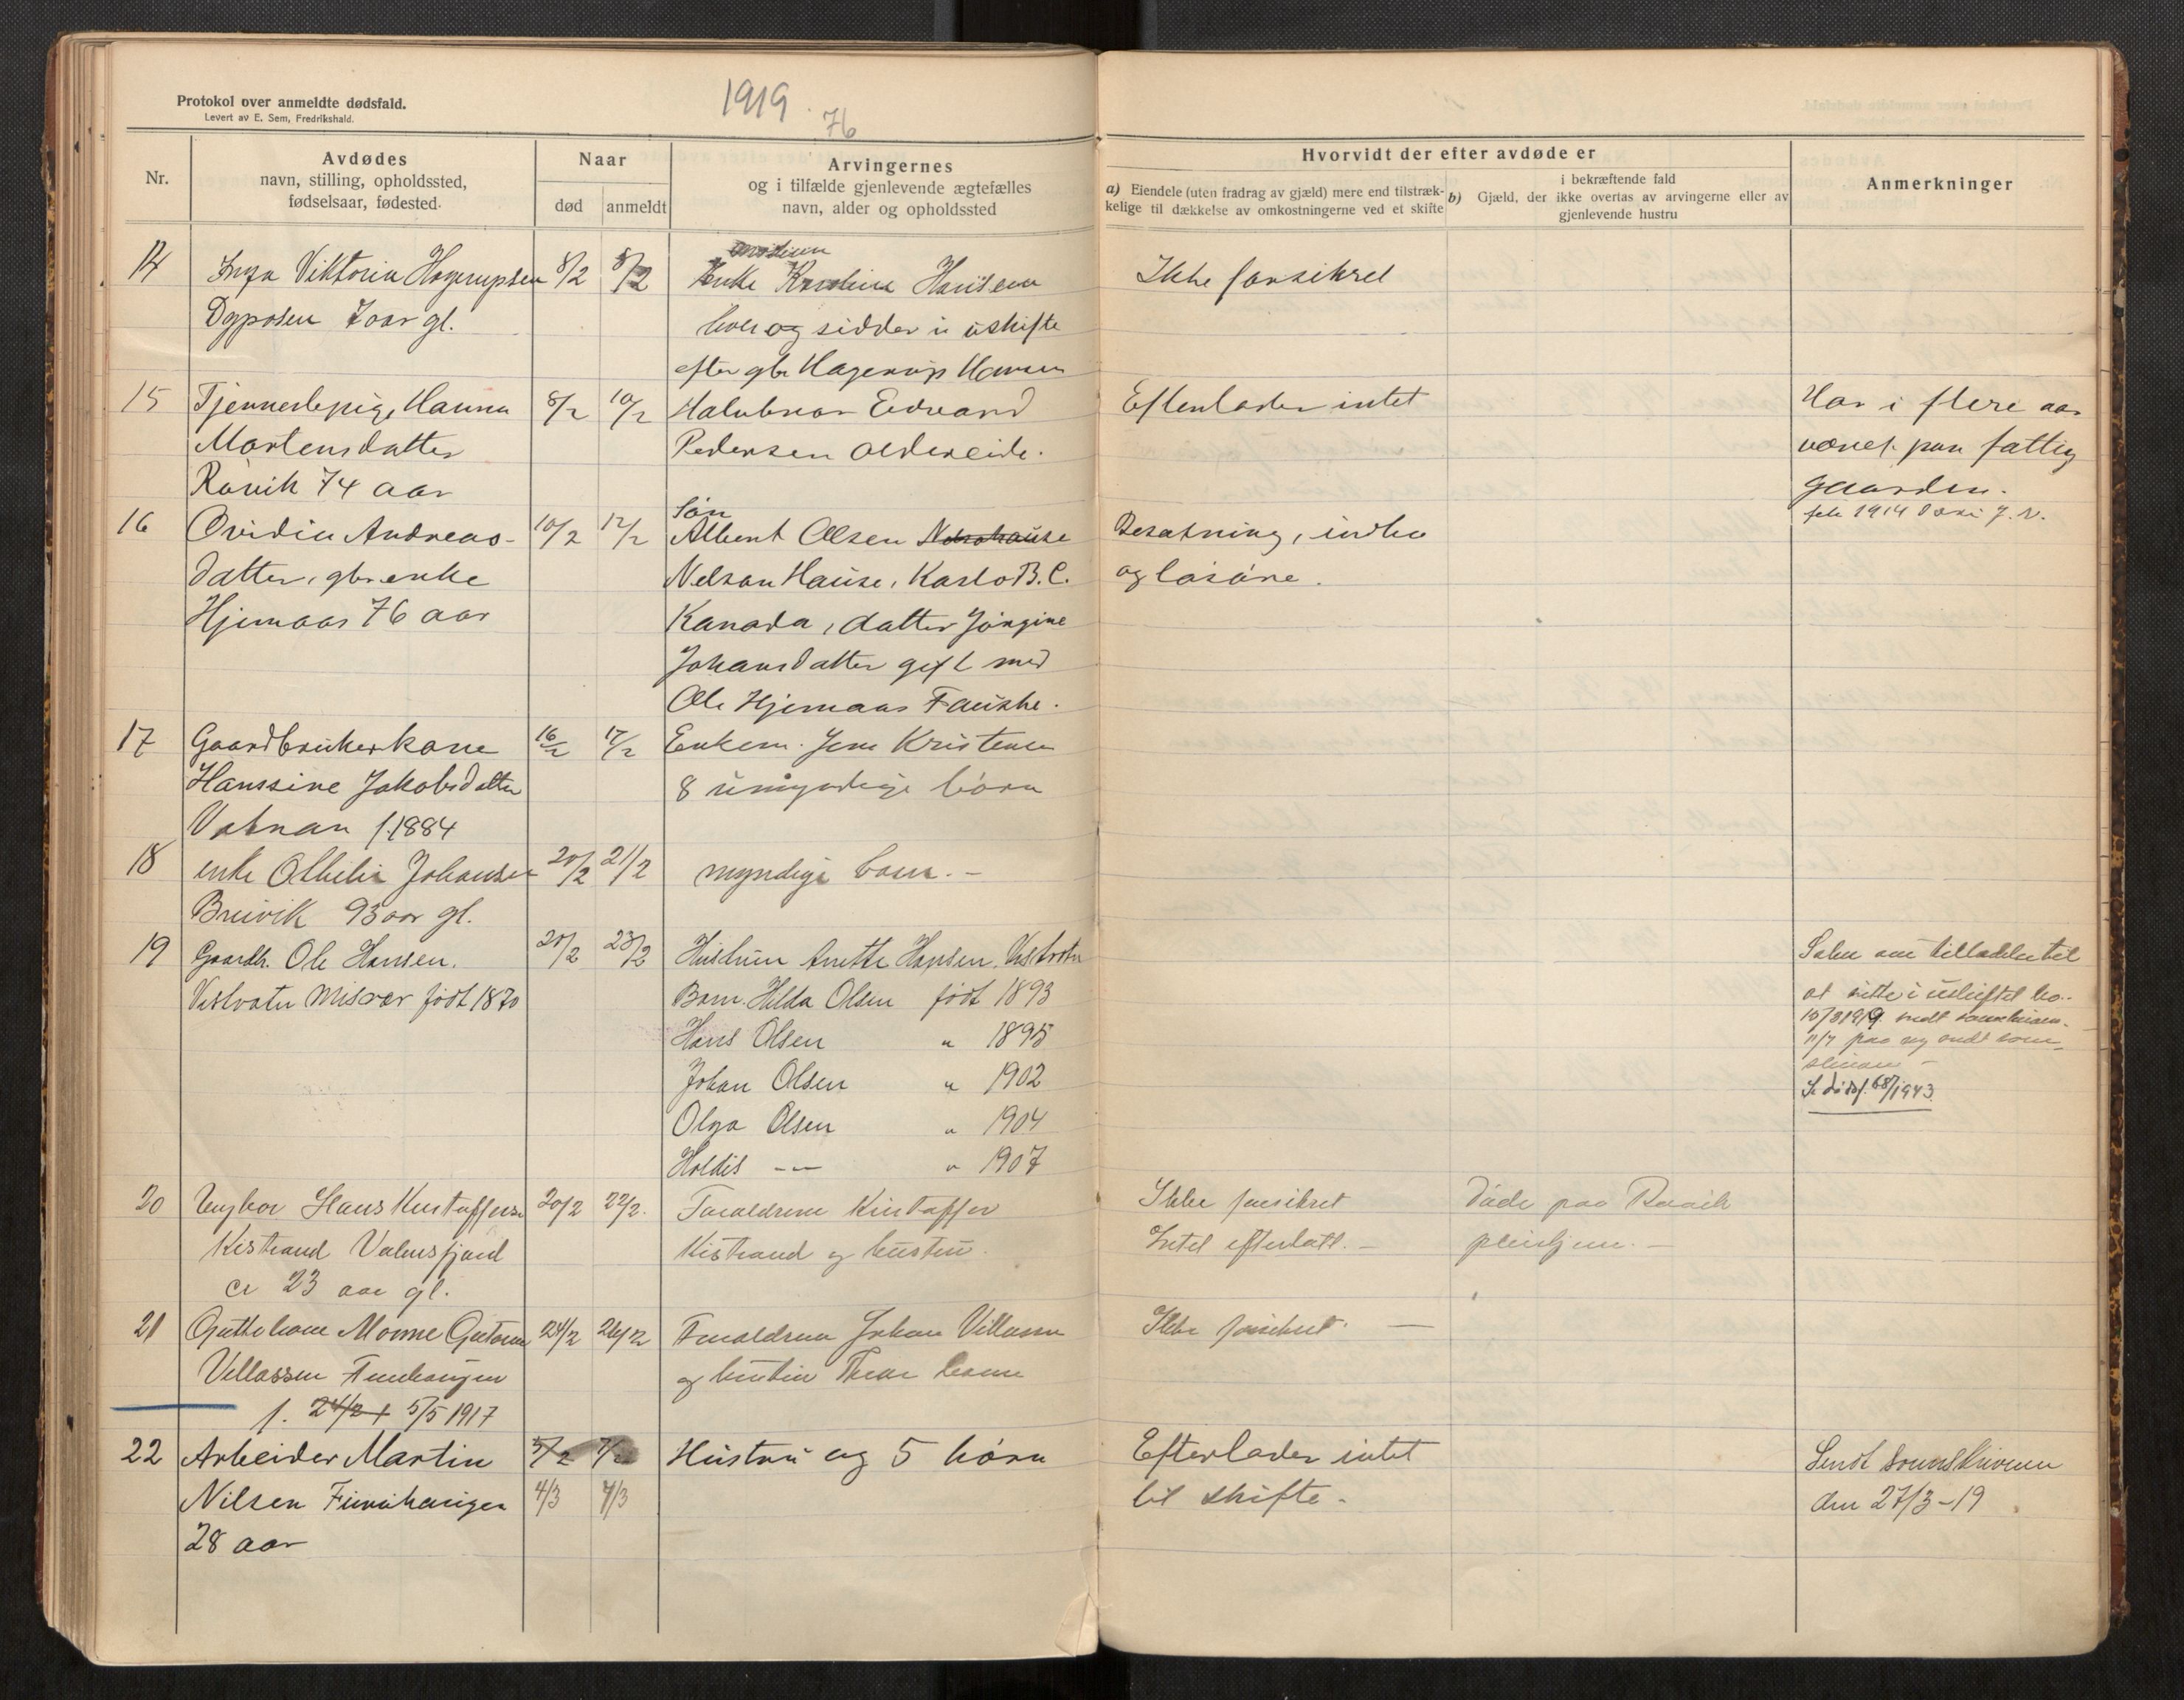 Protokol over anmeldte dødsfald.
Levert av E. Sem, Fredrikshald.
1919
76
Nr.
Avdødes
navn, stilling, opholdssted,
fødselsaar, fødested.
Naar
død
anmeldt
Arvingernes
og i tilfælde gjenlevende ægtefælles
navn, alder og opholdssted
Hvorvidt der efter avdøde er
a) Eiendele (uten fradrag av gjæld) mere end tilstræk-
kelige til dækkelse av omkostningerne ved et skifte
b) i bekræftende fald
Gjæld, der ikke overtas av arvingerne eller av
gjenlevende hustru
Anmerkninger
14 Inga Viktoria Hagerupsen 8/2 8/2 Enke Hansen Ikke forsikret
7 aar gl. og sidder i uskifte
efter gbr Hagerup Hansen
15 Tjennestepige Hanna 8/2 10/2 Halvbror Edvard Efterlader intet Har i flere aar
Mortensdatter Pedersen Oldereide. været paa fattig
Røvik 74 aar gaarden.
16 Ovidia Andreas- 10/2 12/2 Søn Albert Olsen Besætning, indbo
datter, gbr.enke Nelson Hause, Kaslo B.C. og løsøre.
Hjemaas 76 aar Kanada, datter Jørgine
Johansdatter gift med
Ole Hjemaas Fauske.
17 Gaardbrukerkone 16/2 17/2 Enkem. Jens Kristensen
Hanssine Jakobsdatter 8 umyndige børn
Vatnan f. 1884
18 enke Othilie Johansen 20/2 21/2 myndige barn. -
Breivik 93 aar gl.
19 Gaardbr. Ole Hansen. 20/2 23/2 Hustru Anette Hansen, Vestvatn
Vestvatn Misvær født 1870 Barn. Hilda Olsen født 1893
Hans Olsen " 1895
Johan Olsen " 1902
Olga Olsen " 1904
Holdis -"- " 1907
at sitte i uskiftet bo.
Se dødsf. 68/1943.
20 Ungkar Hans Kristoffersen 20/2 22/2. Foreldrene Kristoffer Ikke forsikret Døde paa Røvik
Kistrand Valnesfjord Kistrand og hustru. Intet efterlatt. - pleiehjem. -
ca 23 aar gl.
21 24/2 26/2 Foreldrene Johan Villassen Ikke forsikret. -
Villassen Finneidhaugen og hustru
f. 24/2 + 5/5 1917
22 Arbeider Martin Hustru og 5 børn Efterlader intet Sendt sorenskriveren
Nilsen 4/3 7/3 til skifte. den 27/3-19
28 aar